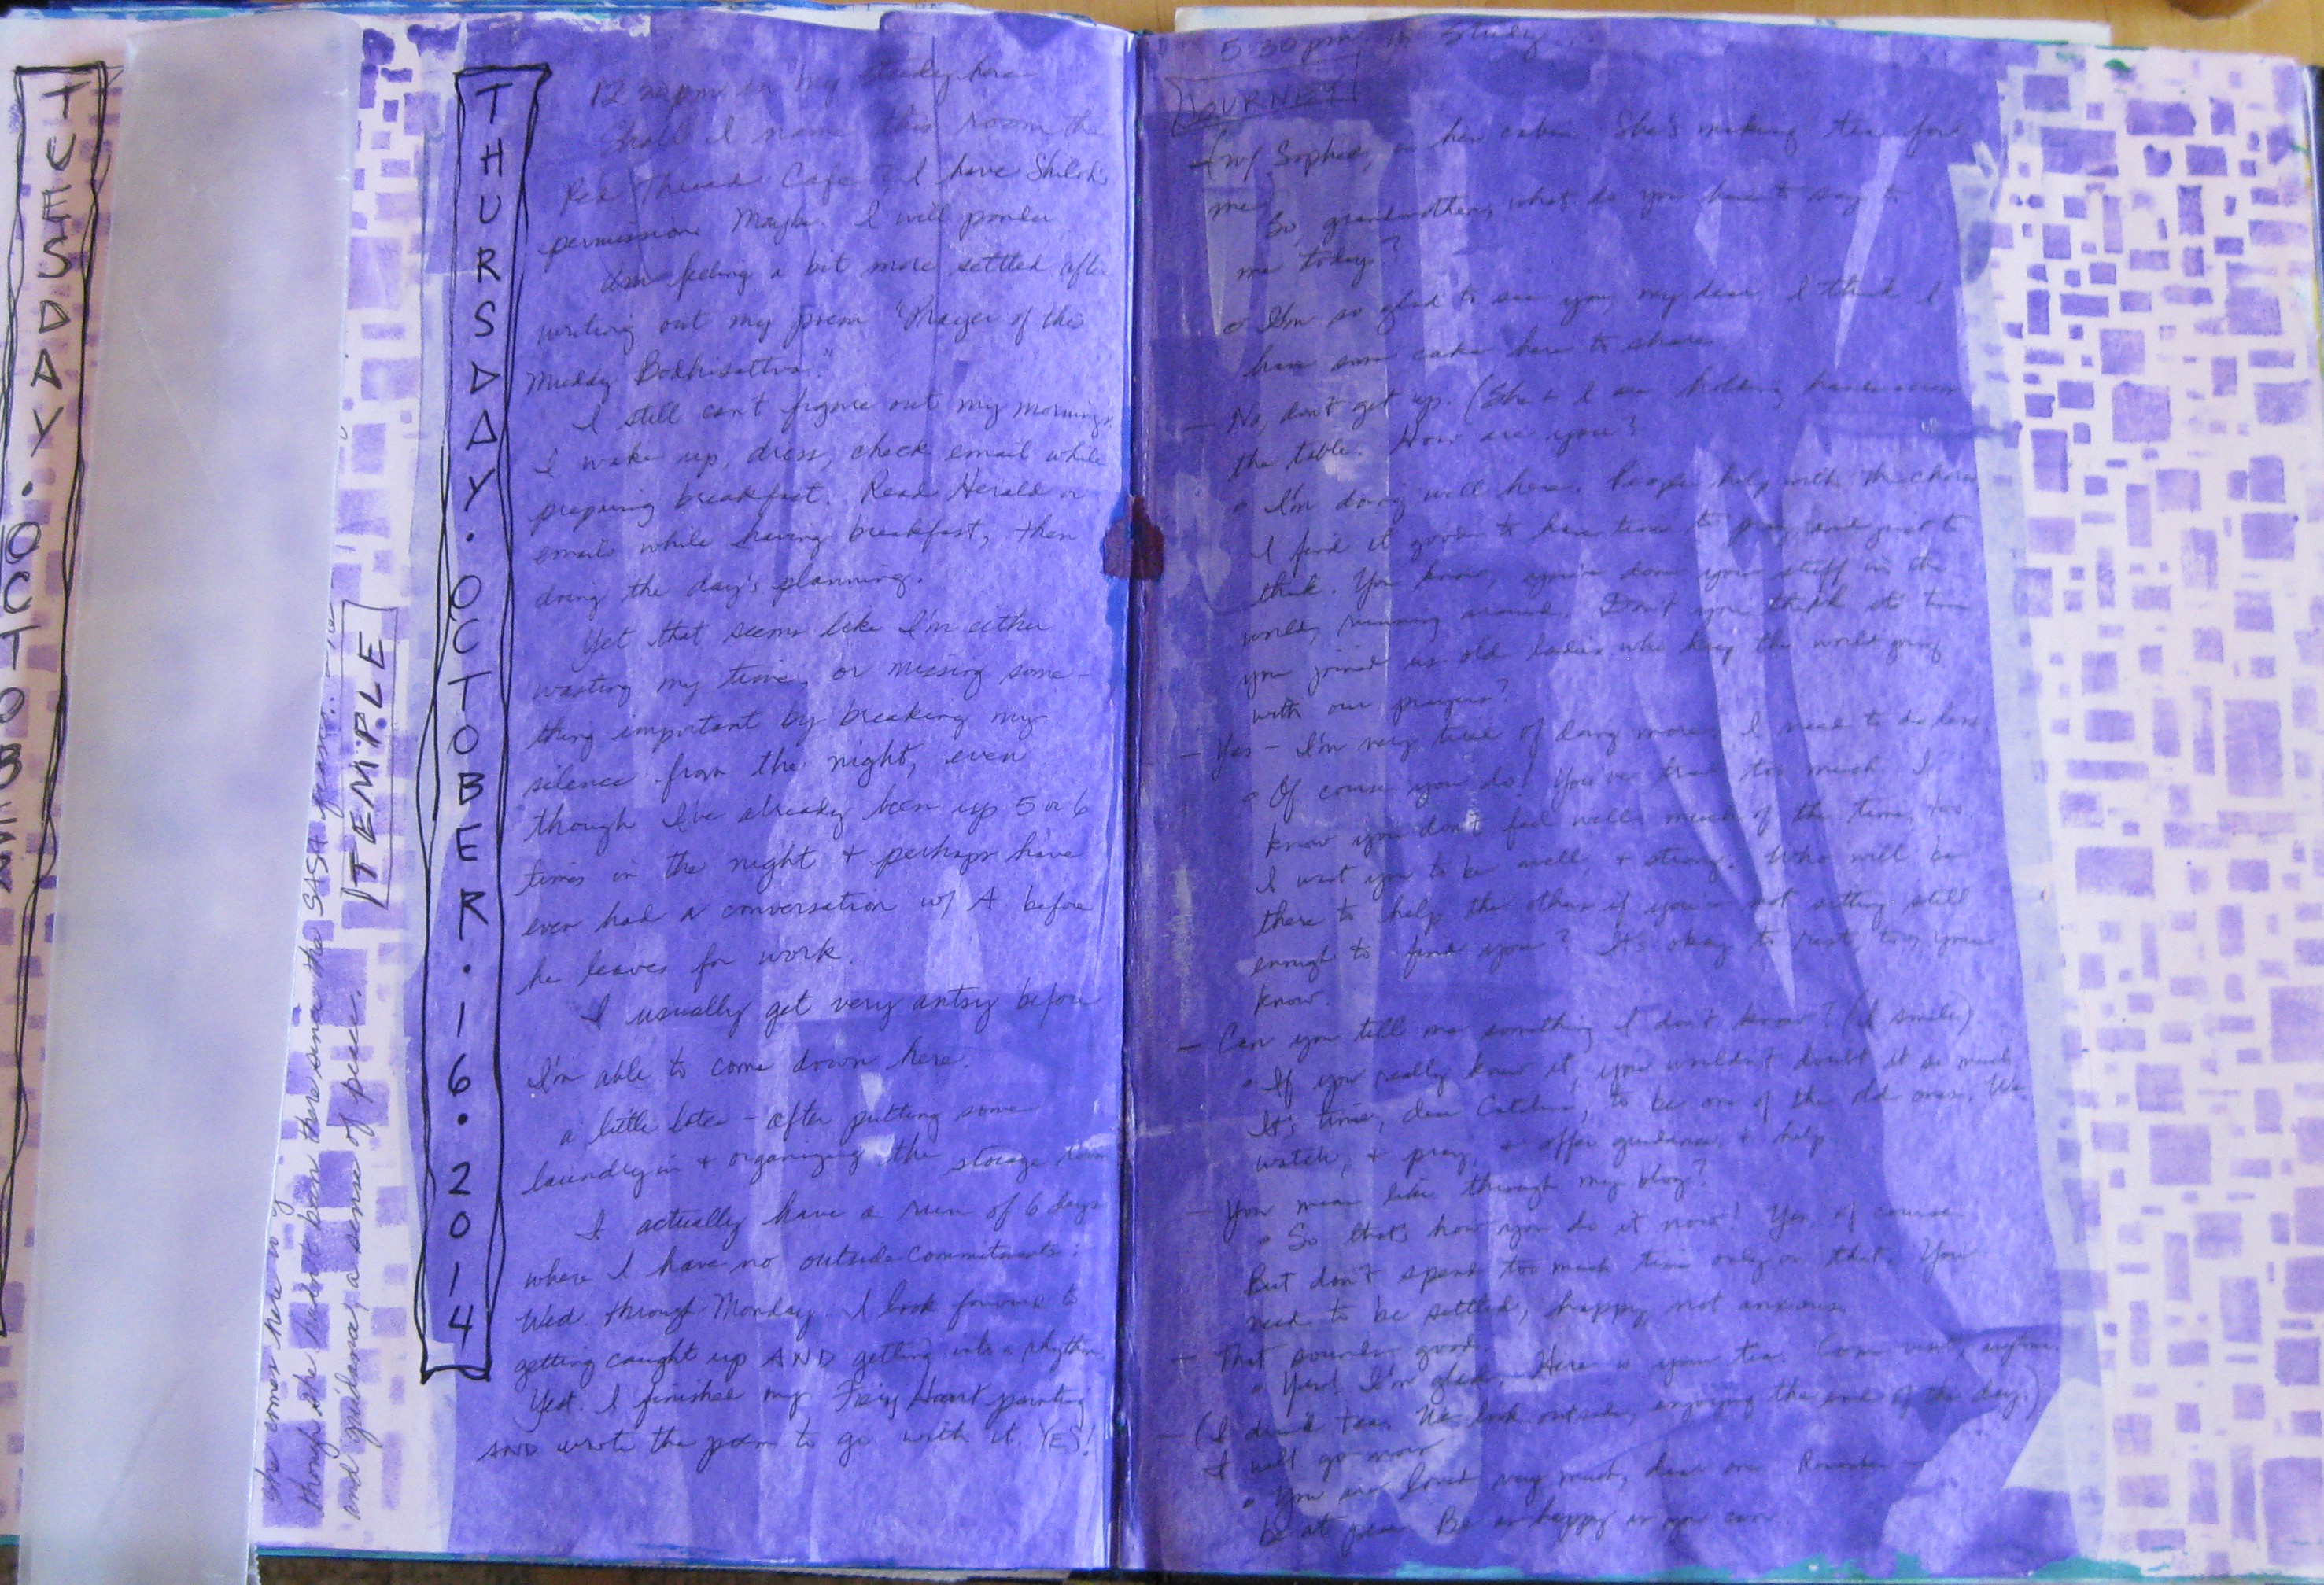 TUESDAY • OCTOBER
she comes here
though she had not been there since the SASA
and guidance, a sense of peace.
TEMPLE
THURSDAY • OCTOBER • 16 • 2014
12 30 pm in my study here
Shall I name this room the
Red Thread Cafe? I have Shiloh's
permission. Maybe. I will ponder
Am feeling a bit more settled after
writing out my poem "Prayer of the
Muddy Bodhisattva."
I still can't figure out my mornings.
I wake up, dress, check email while
preparing breakfast. Read Herald or
emails while having breakfast, then
doing the day's planning.
Yet that seems like I'm either
wasting my time, or missing some-
thing important by breaking my
silence from the night, even
though I've already been up 5 or 6
times in the night + perhaps have
even had a conversation w/ A before
he leaves for work.
I usually get very antsy before
I'm able to come down here.
a little later - after putting some
laundry in + organizing the storage room
I actually have a run of 6 days
where I have no outside commitments:
Wed. through Monday. I look forward to
getting caught up AND getting into a rhythm.
Yest. I finished my Fiery Heart painting
AND wrote the poem to go with it. YES!
5:30 pm in Study...
JOURNEY
- (w/ Sophia, in her cabin. She's making tea for
me)
So, grandmother, what do you have to say to
me today?
I'm so glad to see you, my dear. I think I
have some cake here to share.
- No, don't get up. (She + I are holding hands across
the table. How are you?
I'm doing well here. People help with the chores.
I find it good to have time to pray, and just to
think. You know, you've done your stuff in the
world, running around. Don't you think it's time
you joined us old ladies who keep the world going
with our prayers?
- Yes - I'm very tired of doing more. I need to do less.
Of course you do! You've tried too much. I
know you don't feel well much of the time, too.
I want you to be well, + strong. Who will be
there to help the others if you're not sitting still
enough to find you? It's okay to rest, too, you
know.
- Can you tell me something I don't know? (I smile)
If you really knew it, you wouldn't doubt it so much.
It's time, dear to be one of the old ones. We
watch, + pray, + offer guidance, + help.
- You mean like through my blog?
So that's how you do it now! Yes, of course.
But don't spend too much time only on that. You
need to be settled, happy, not anxious.
- That sounds good.
Yes! I'm glad. Here is your tea. Come visit, anytime.
- (I drink tea. We look outside, enjoying the end of the day.)
I will go now
You are loved very much, dear one. Remember -
be at peace. Be as happy as you can.